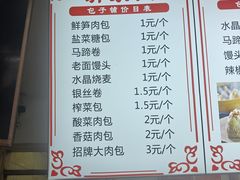 包子铺价目表
鲜笋肉包 1元/个
盐菜糖包 1元/个
马蹄卷 1元/个
老面馒头 1元/个
水晶烧麦 1元/个
银丝卷 1.5元/个
榨菜包 1.5元/个
酸菜肉包 2元/个
香菇肉包 2元/个
招牌大肉包 3元/个
水晶
馒头
辣椒